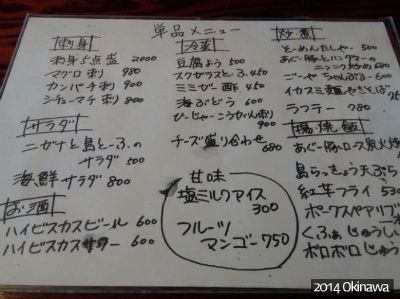 単品メニュー
刺身
刺身5点盛 2000
マグロ刺 980
カンパチ刺 900
シチューマチ刺 800
サラダ
ニガナと島とーふの
サラダ 500
海鮮サラダ 800
お酒
ハイビスカスビール 600
ハイビスカスサワー 600
冷菜
豆腐よう 500
スクガラスとーふ 450
ミミガー酢 450
海ぶどう 600
ひーじゃーこうやん刺
900
チーズ盛り合わせ
680
甘味
塩ミルクアイス
300
フルーツ
マンゴー 750
炒・煮
そーめんたしやー 500
あぐー豚とハンダマーの
ニンニク炒め 680
ごーやちゃんぷるー 680
イカスミ麺やきそば
ラフテー 780
揚・焼・飯
あぐー豚ロース炭火焼
島らっきょう天ぷら
紅芋フライ 530
ポークスペアリブ
くふぁじゅうしい
ボロボロじゅう
2014 Okinawa